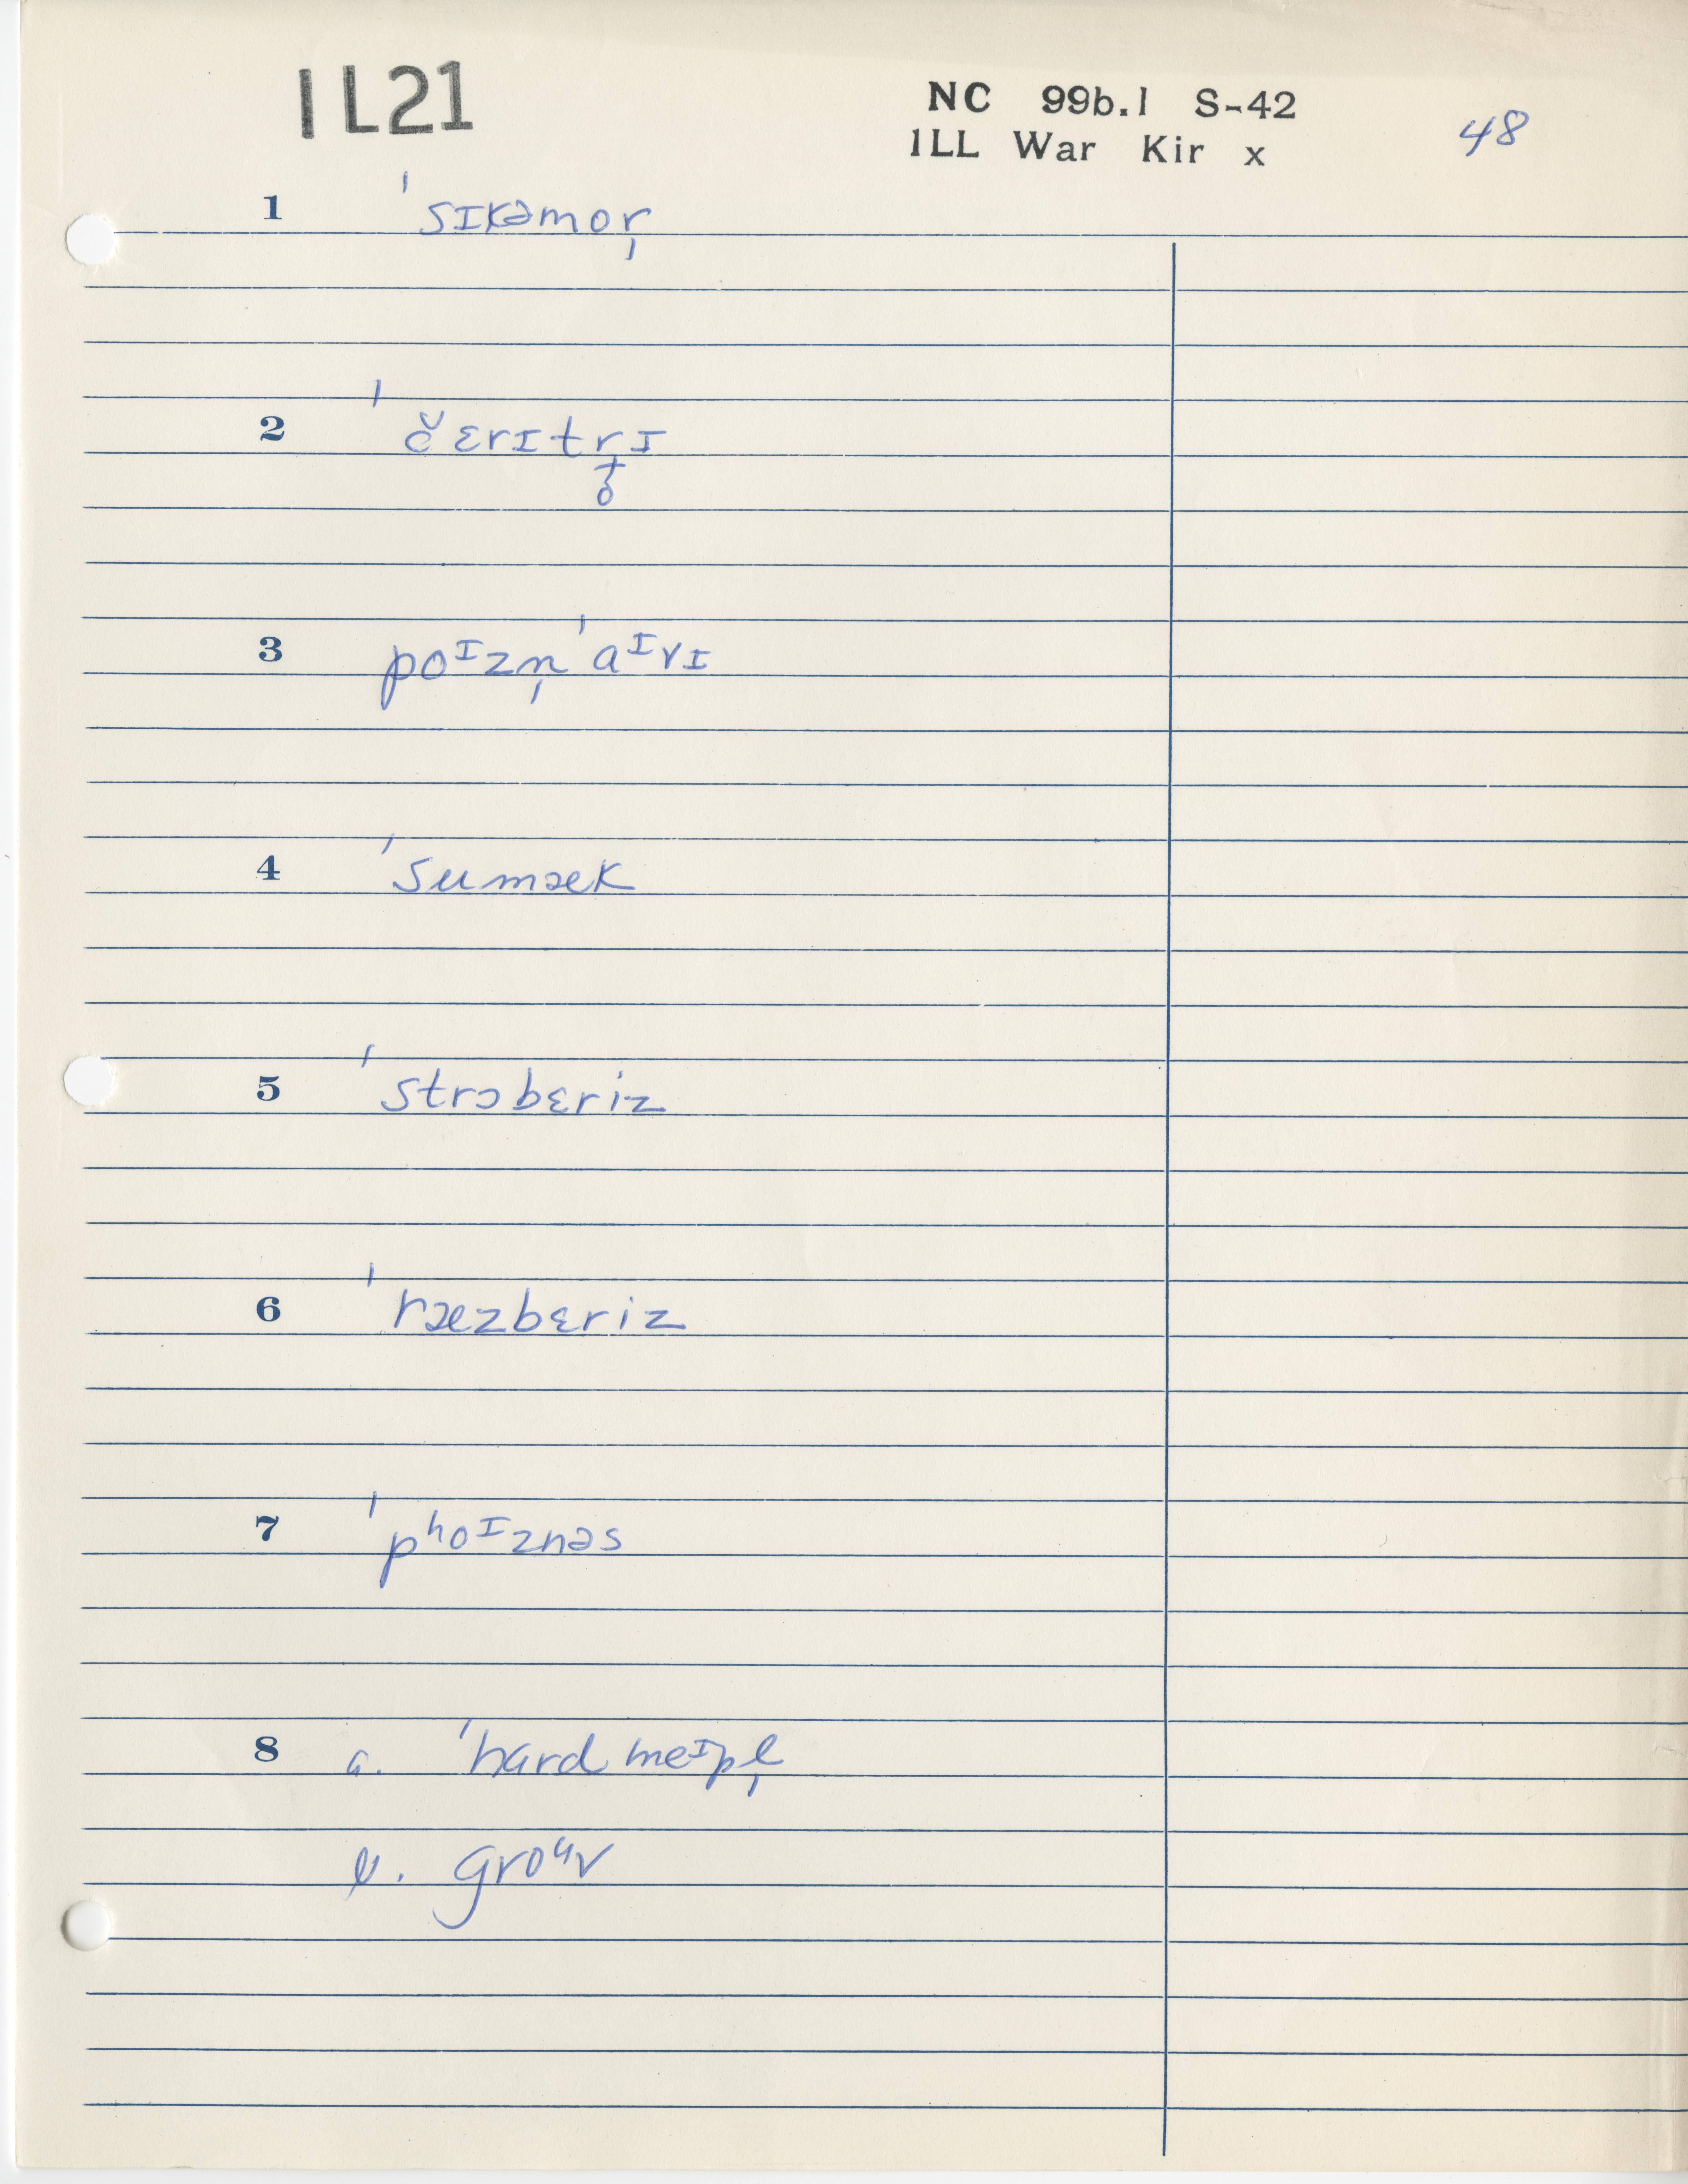 IL21
NC 99b.1 S-42
ILL War Kir x
48
1 ˈsɪkəmor̩
2 ˈčɛrɪtr̥̟ɪ
3 poᴵzn̩ˈaᴵvɪ
4 ˈsumæk
5 ˈstrɔbɛriz
6 ˈræzbɛriz
7 ˈpʰoᴵznəs
8 a. ˈhard meᴵpl̩
b. groᵘv